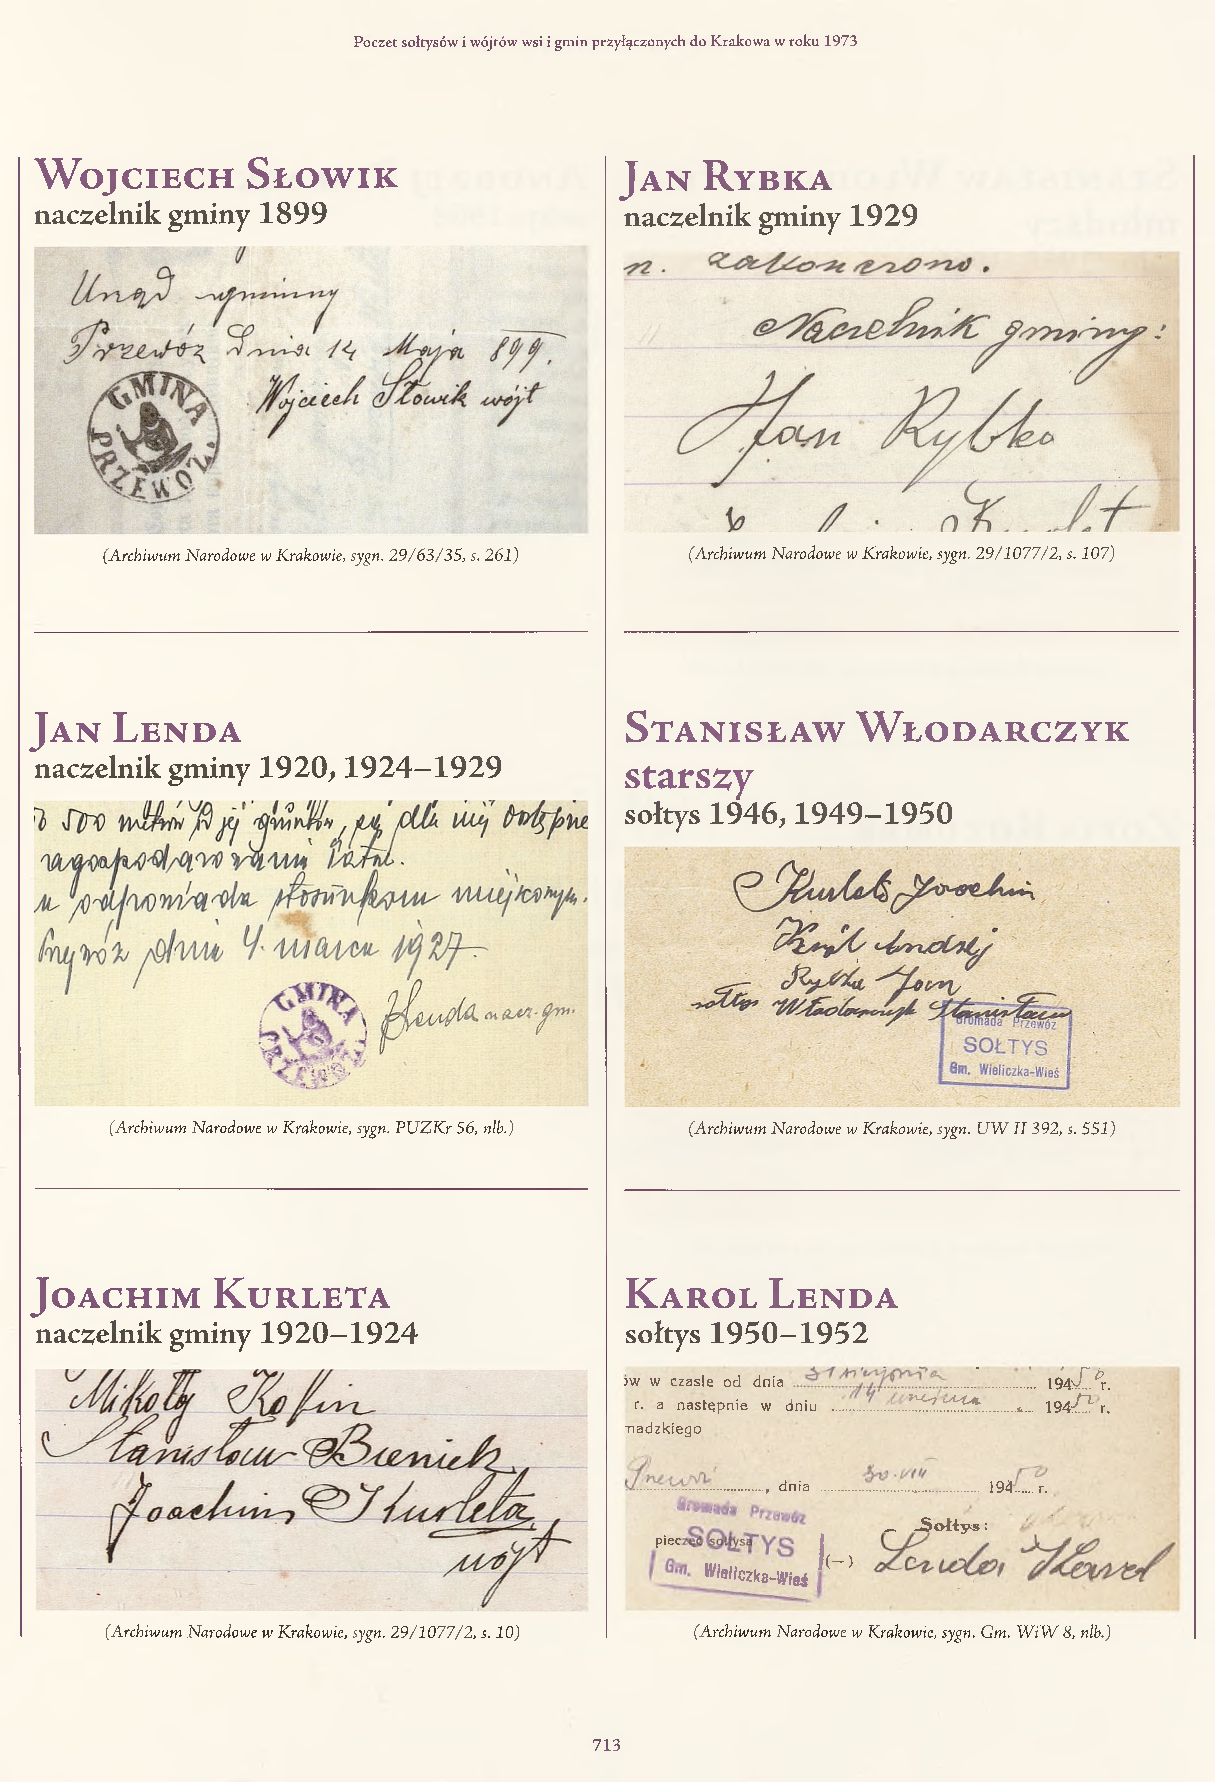 Poczet sołtysów i wójtów wsi i gmin przyłączonych do Krakowa w roku 1973
Wojciech Słowik
naczelnik gminy 1899
Urząd gminny
Przewóz dnia 14 Maja 899.
Wojciech Słowik wójt
GMINA
PRZEWÓZ.
(Archiwum Narodowe w Krakowie, sygn. 29/63/35, s. 261)
Jan Lenda
naczelnik gminy 1920, 1924–1929
500 metrów od jej gruntów, są dla niej dostępne
zagospodarowania
odpowiada stosunkom miejscowym.
Przewóz dnia 4. marca 1927.
GMINA
PRZEWÓZ
JLenda nacz. gm.
(Archiwum Narodowe w Krakowie, sygn. PUZKr 56, nlb.)
Joachim Kurleta
naczelnik gminy 1920–1924
Mikołaj
Stanisław Bieniek
Joachim Kurleta,
wójt
(Archiwum Narodowe w Krakowie, sygn. 29/1077/2, s. 10)
Jan Rybka
naczelnik gminy 1929
n. zakończono.
Naczelnik gminy:
Jan Rybka
(Archiwum Narodowe w Krakowie, sygn. 29/1077/2, s. 107)
Stanisław Włodarczyk
starszy
sołtys 1946, 1949–1950
Kurleta Joachim
Król Andrzej
Rybka Jan
sołtys Włodarczyk Stanisław
Gromada Przewóz
SOŁTYS
Gm. Wieliczka-Wieś
(Archiwum Narodowe w Krakowie, sygn. UW II 392, s. 551)
Karol Lenda
sołtys 1950–1952
ów w czasie od dnia 31 sierpnia 1950 r.
r. a następnie w dniu 14 września 1950 r.
madzkiego
Przewóz, dnia 30.VIII 1950 r.
Gromada Przewóz
SOŁTYS
Gm. Wieliczka-Wieś
pieczęć sołtysa
Sołtys:
(—) Lenda Karol
(Archiwum Narodowe w Krakowie, sygn. Gm. WiW 8, nlb.)
713